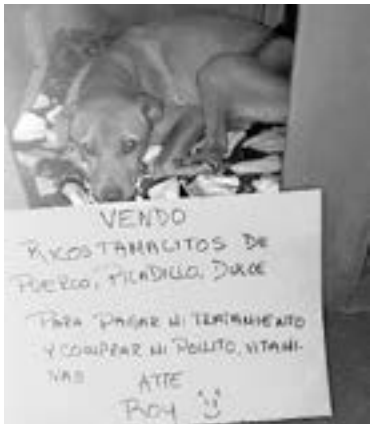 VENDO
RICOS TAMALITOS DE
PUERCO, PICADILLO, DULCE
PARA PAGAR MI TRATAMIENTO
Y COMPRAR MI POLLITO, VITAMI-
NAS
ATTE
ROY